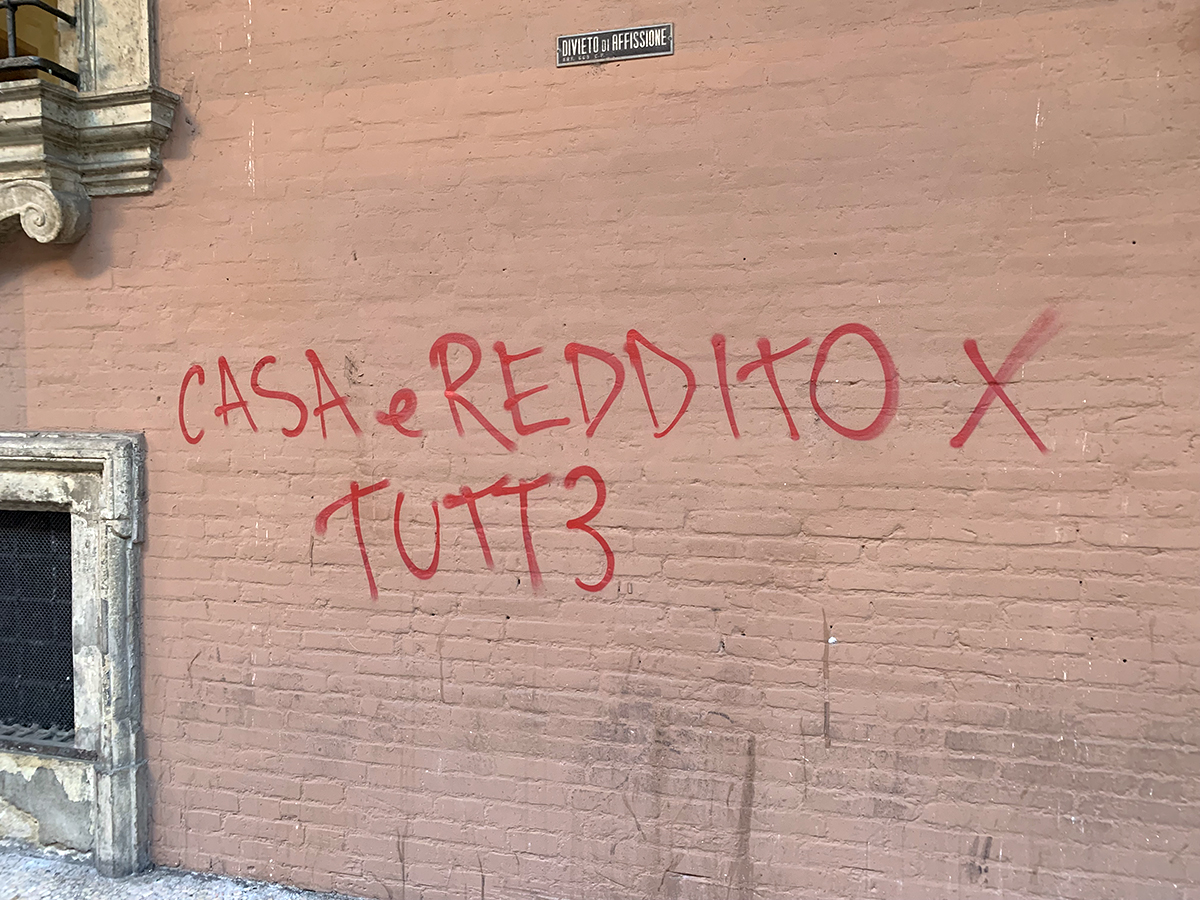 DIVIETO DI AFFISSIONE
CASA e REDDITO X
TUTT3